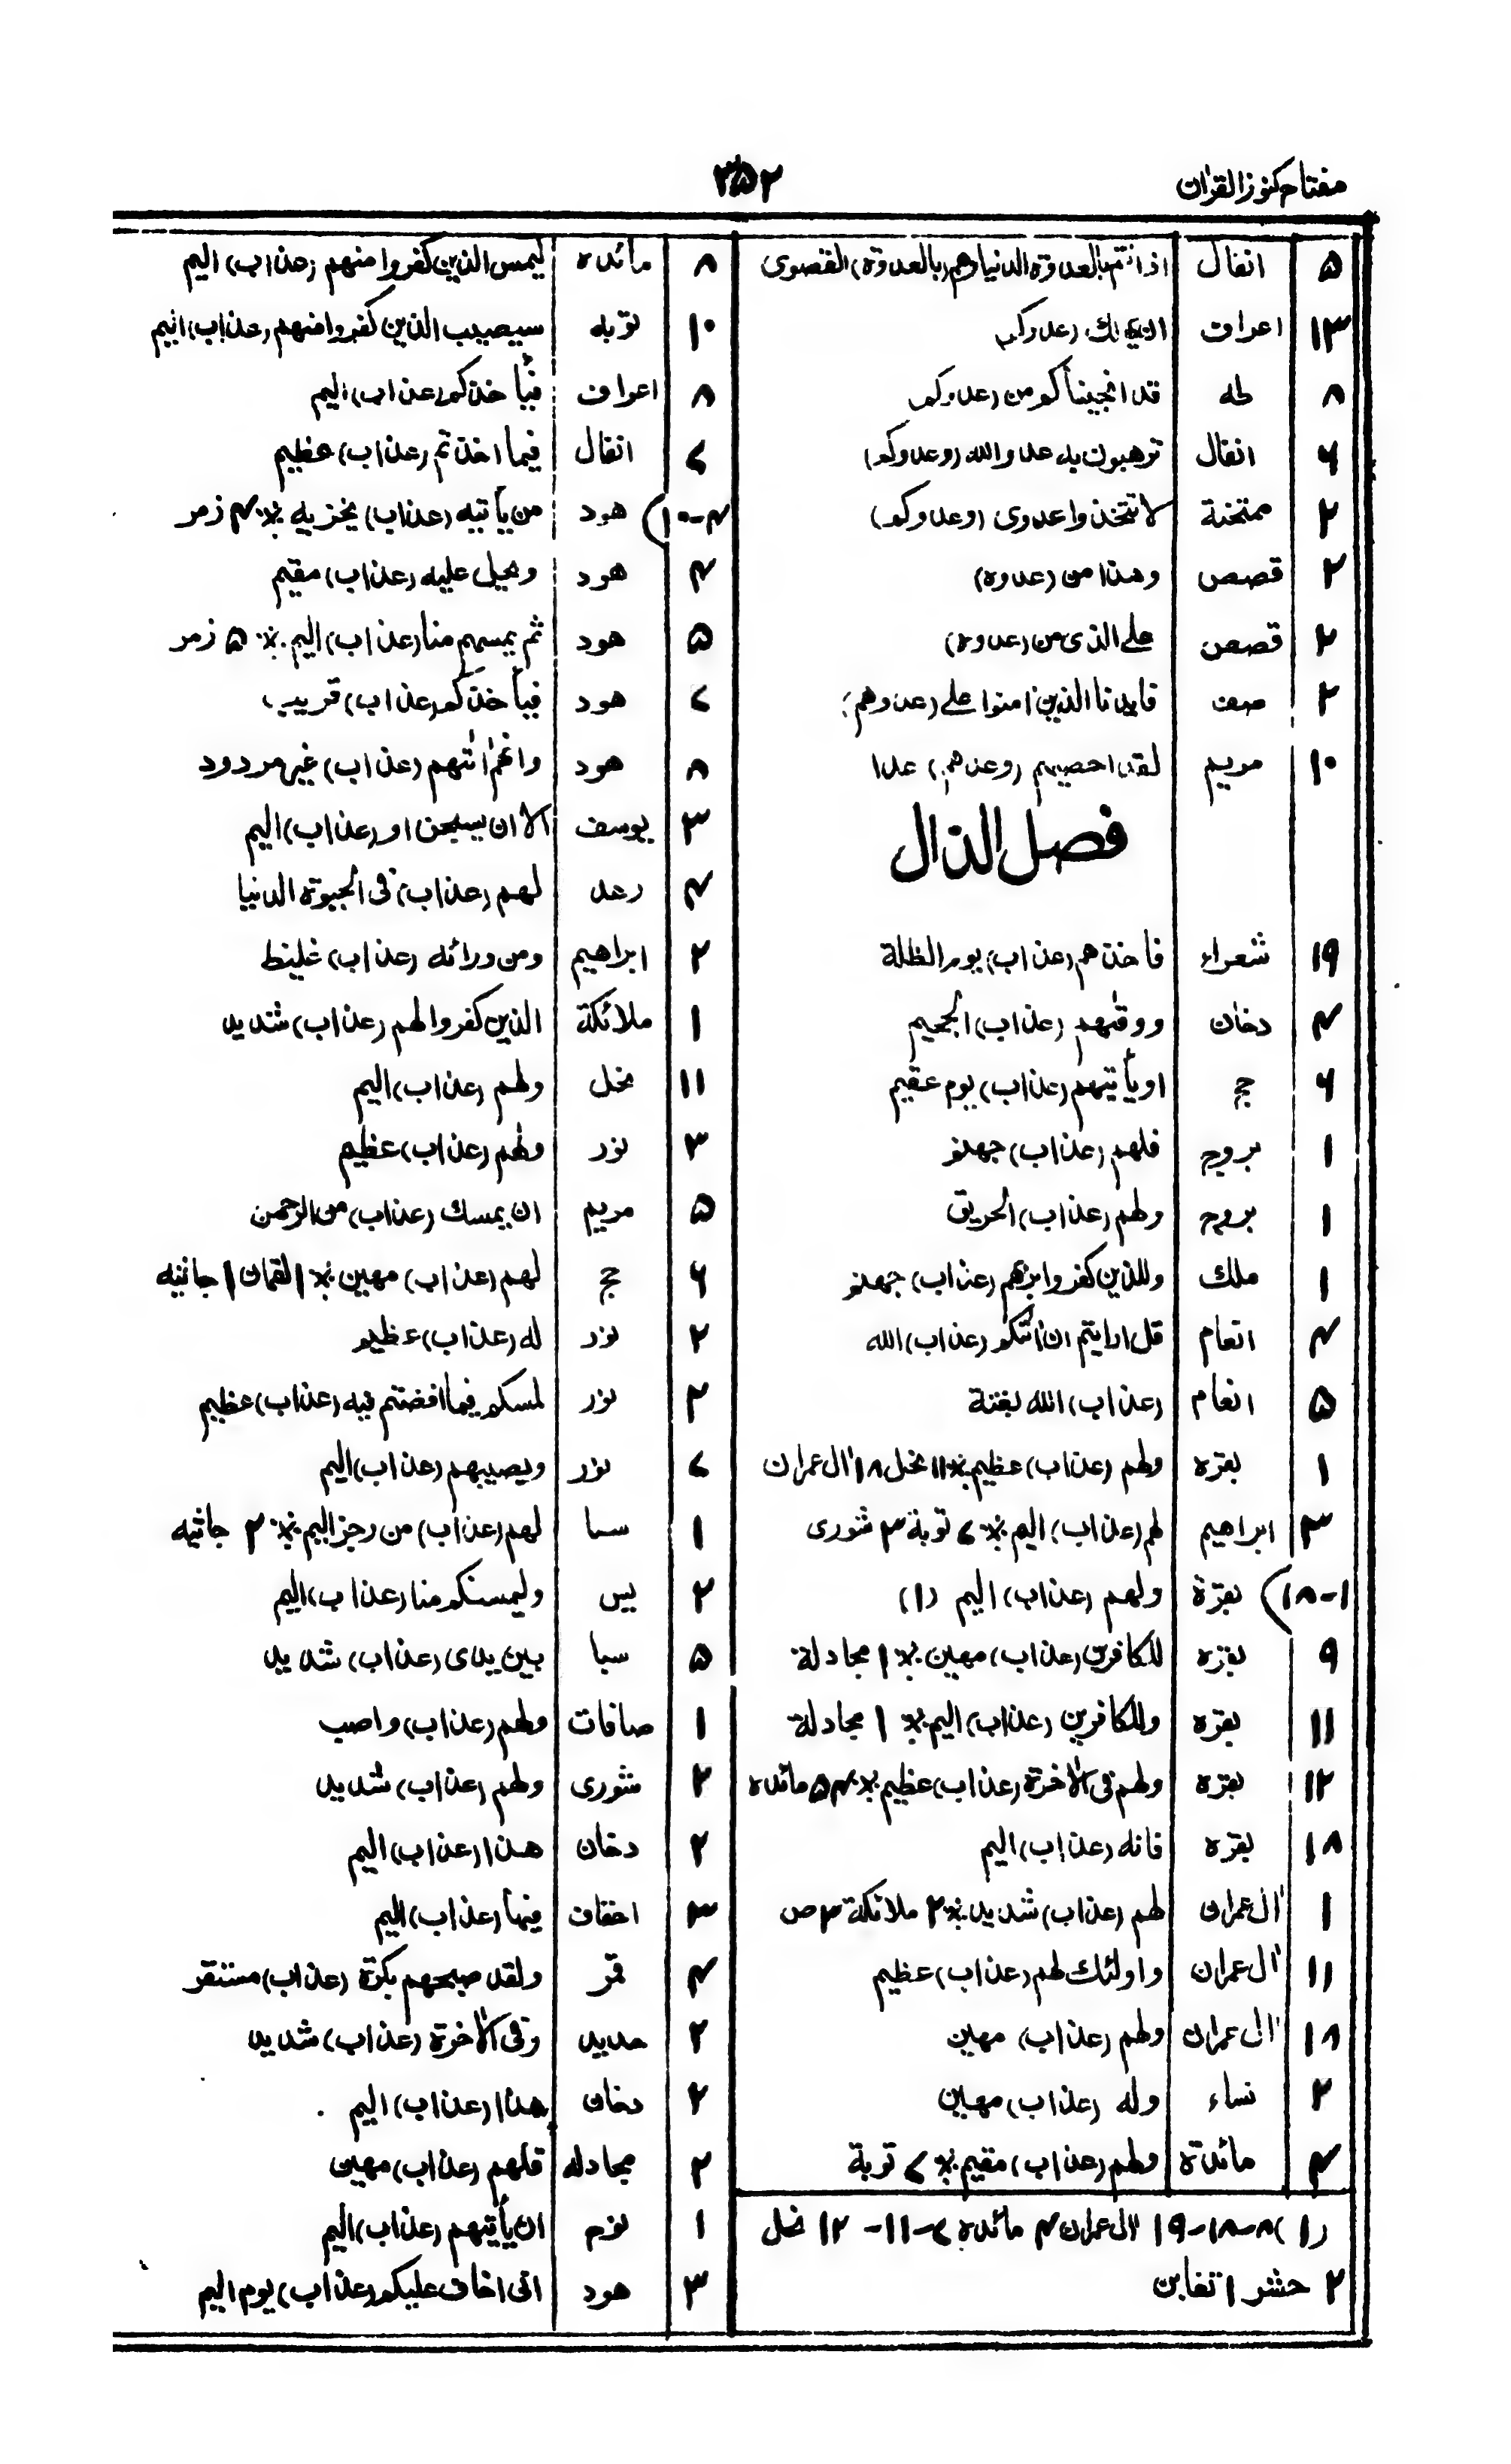 مفتاح کنوز القرآن
۳۵۲
۵ انفال اذ انتم بالعدوة الدنیا وهم (بالعدوة) القصوی
۱۳ اعراف (عدوکم
۸ طه قد انجیناکم من (عدوکم
۶ انفال ترهبون به عدو الله (وعدوکم)
۲ ممتحنة لا تتخذوا عدوی (وعدوکم)
۲ قصص وهذا من (عدوه)
۲ قصص علی الذی من (عدوه)
۲ صف فایدنا الذین امنوا علی (عدوهم)
۱۰ مریم لقد احصیهم (وعدهم) عدا
فصل الذال
۱۹ شعراء فاخذهم (عذاب) یوم الظلة
۴ دخان ووقیهم (عذاب) الجحیم
۶ حج او یأتیهم (عذاب) یوم عقیم
۱ بروج فلهم (عذاب) جهنم
۱ بروج ولهم (عذاب) الحریق
۱ ملک وللذین کفروا بربهم (عذاب) جهنم
۴ انعام قل ارایتم ان اتکم (عذاب) الله
۵ انعام (عذاب) الله بغتة
۱ بقره ولهم (عذاب) عظیم ٪ ۱۱ نحل ۱۸ اٰل عمران
۳ ابراهیم لهم (عذاب) الیم ٪ ۷ توبة ۳ شوری
۱-۱۸) بقرة ولهم (عذاب) الیم (۱)
۹ بقره للکافرین (عذاب) مهین ٪ ۱ مجادلة
۱۱ بقره وللکافرین (عذاب) الیم ٪ ۱ مجادلة
۱۲ بقره ولهم فی الاٰخرة (عذاب) عظیم ٪ ۵ مائده
۱۸ بقره فانه (عذاب) الیم
۱ اٰل عمران لهم (عذاب) شدید ٪ ۲ ملائکة ۳ ص
۱۱ اٰل عمران واولئک لهم (عذاب) عظیم
۱۸ اٰل عمران ولهم (عذاب) مهین
۲ نساء وله (عذاب) مهین
۴ مائدة ولهم (عذاب) مقیم ٪ ۷ توبة
(۱) ۸-۱۸-۱۹ اٰل عمران ۴ مائده ۷-۱۱-۱۲ نحل
۲ حشر ۱ تغابن
۸ مائده لیمس الذین کفروا منهم (عذاب) الیم
۱۰ توبه سیصیب الذین کفروا منهم (عذاب) الیم
۸ اعراف فیأخذکم (عذاب) الیم
۷ انفال فیما اخذتم (عذاب) عظیم
۴-۱۰) هود من یأتیه (عذاب) یخزیه ٪ ۴ زمر
۴ هود ویحل علیه (عذاب) مقیم
۵ هود ثم یمسهم منا (عذاب) الیم ٪ ۵ زمر
۷ هود فیأخذکم (عذاب) قریب
۸ هود وانهم اٰتیهم (عذاب) غیر مردود
۳ یوسف الا ان یسجن او (عذاب) الیم
۴ رعد لهم (عذاب) فی الحیوة الدنیا
۲ ابراهیم ومن ورائه (عذاب) غلیظ
۱ ملائکة الذین کفروا لهم (عذاب) شدید
۱۱ نحل ولهم (عذاب) الیم
۳ نور ولهم (عذاب) عظیم
۵ مریم ان یمسک (عذاب) من الرحمن
۶ حج لهم (عذاب) مهین ٪ ۱ لقمان ۱ جاثیه
۲ نور له (عذاب) عظیم
۲ نور لمسکم فیما افضتم فیه (عذاب) عظیم
۷ نور ویصیبهم (عذاب) الیم
۱ سبا لهم (عذاب) من رجز الیم ٪ ۲ جاثیه
۲ یس ولیمسنکم منا (عذاب) الیم
۵ سبا بین یدی (عذاب) شدید
۱ صافات ولهم (عذاب) واصب
۲ شوری ولهم (عذاب) شدید
۲ دخان هذا (عذاب) الیم
۳ احقاف فیها (عذاب) الیم
۴ قمر ولقد صبحهم بکرة (عذاب) مستقر
۲ حدید وفی الاٰخرة (عذاب) شدید
۲ دخان هذا (عذاب) الیم
۲ مجادله فلهم (عذاب) مهین
۱ نوح ان یأتیهم (عذاب) الیم
۳ هود انی اخاف علیکم (عذاب) یوم الیم